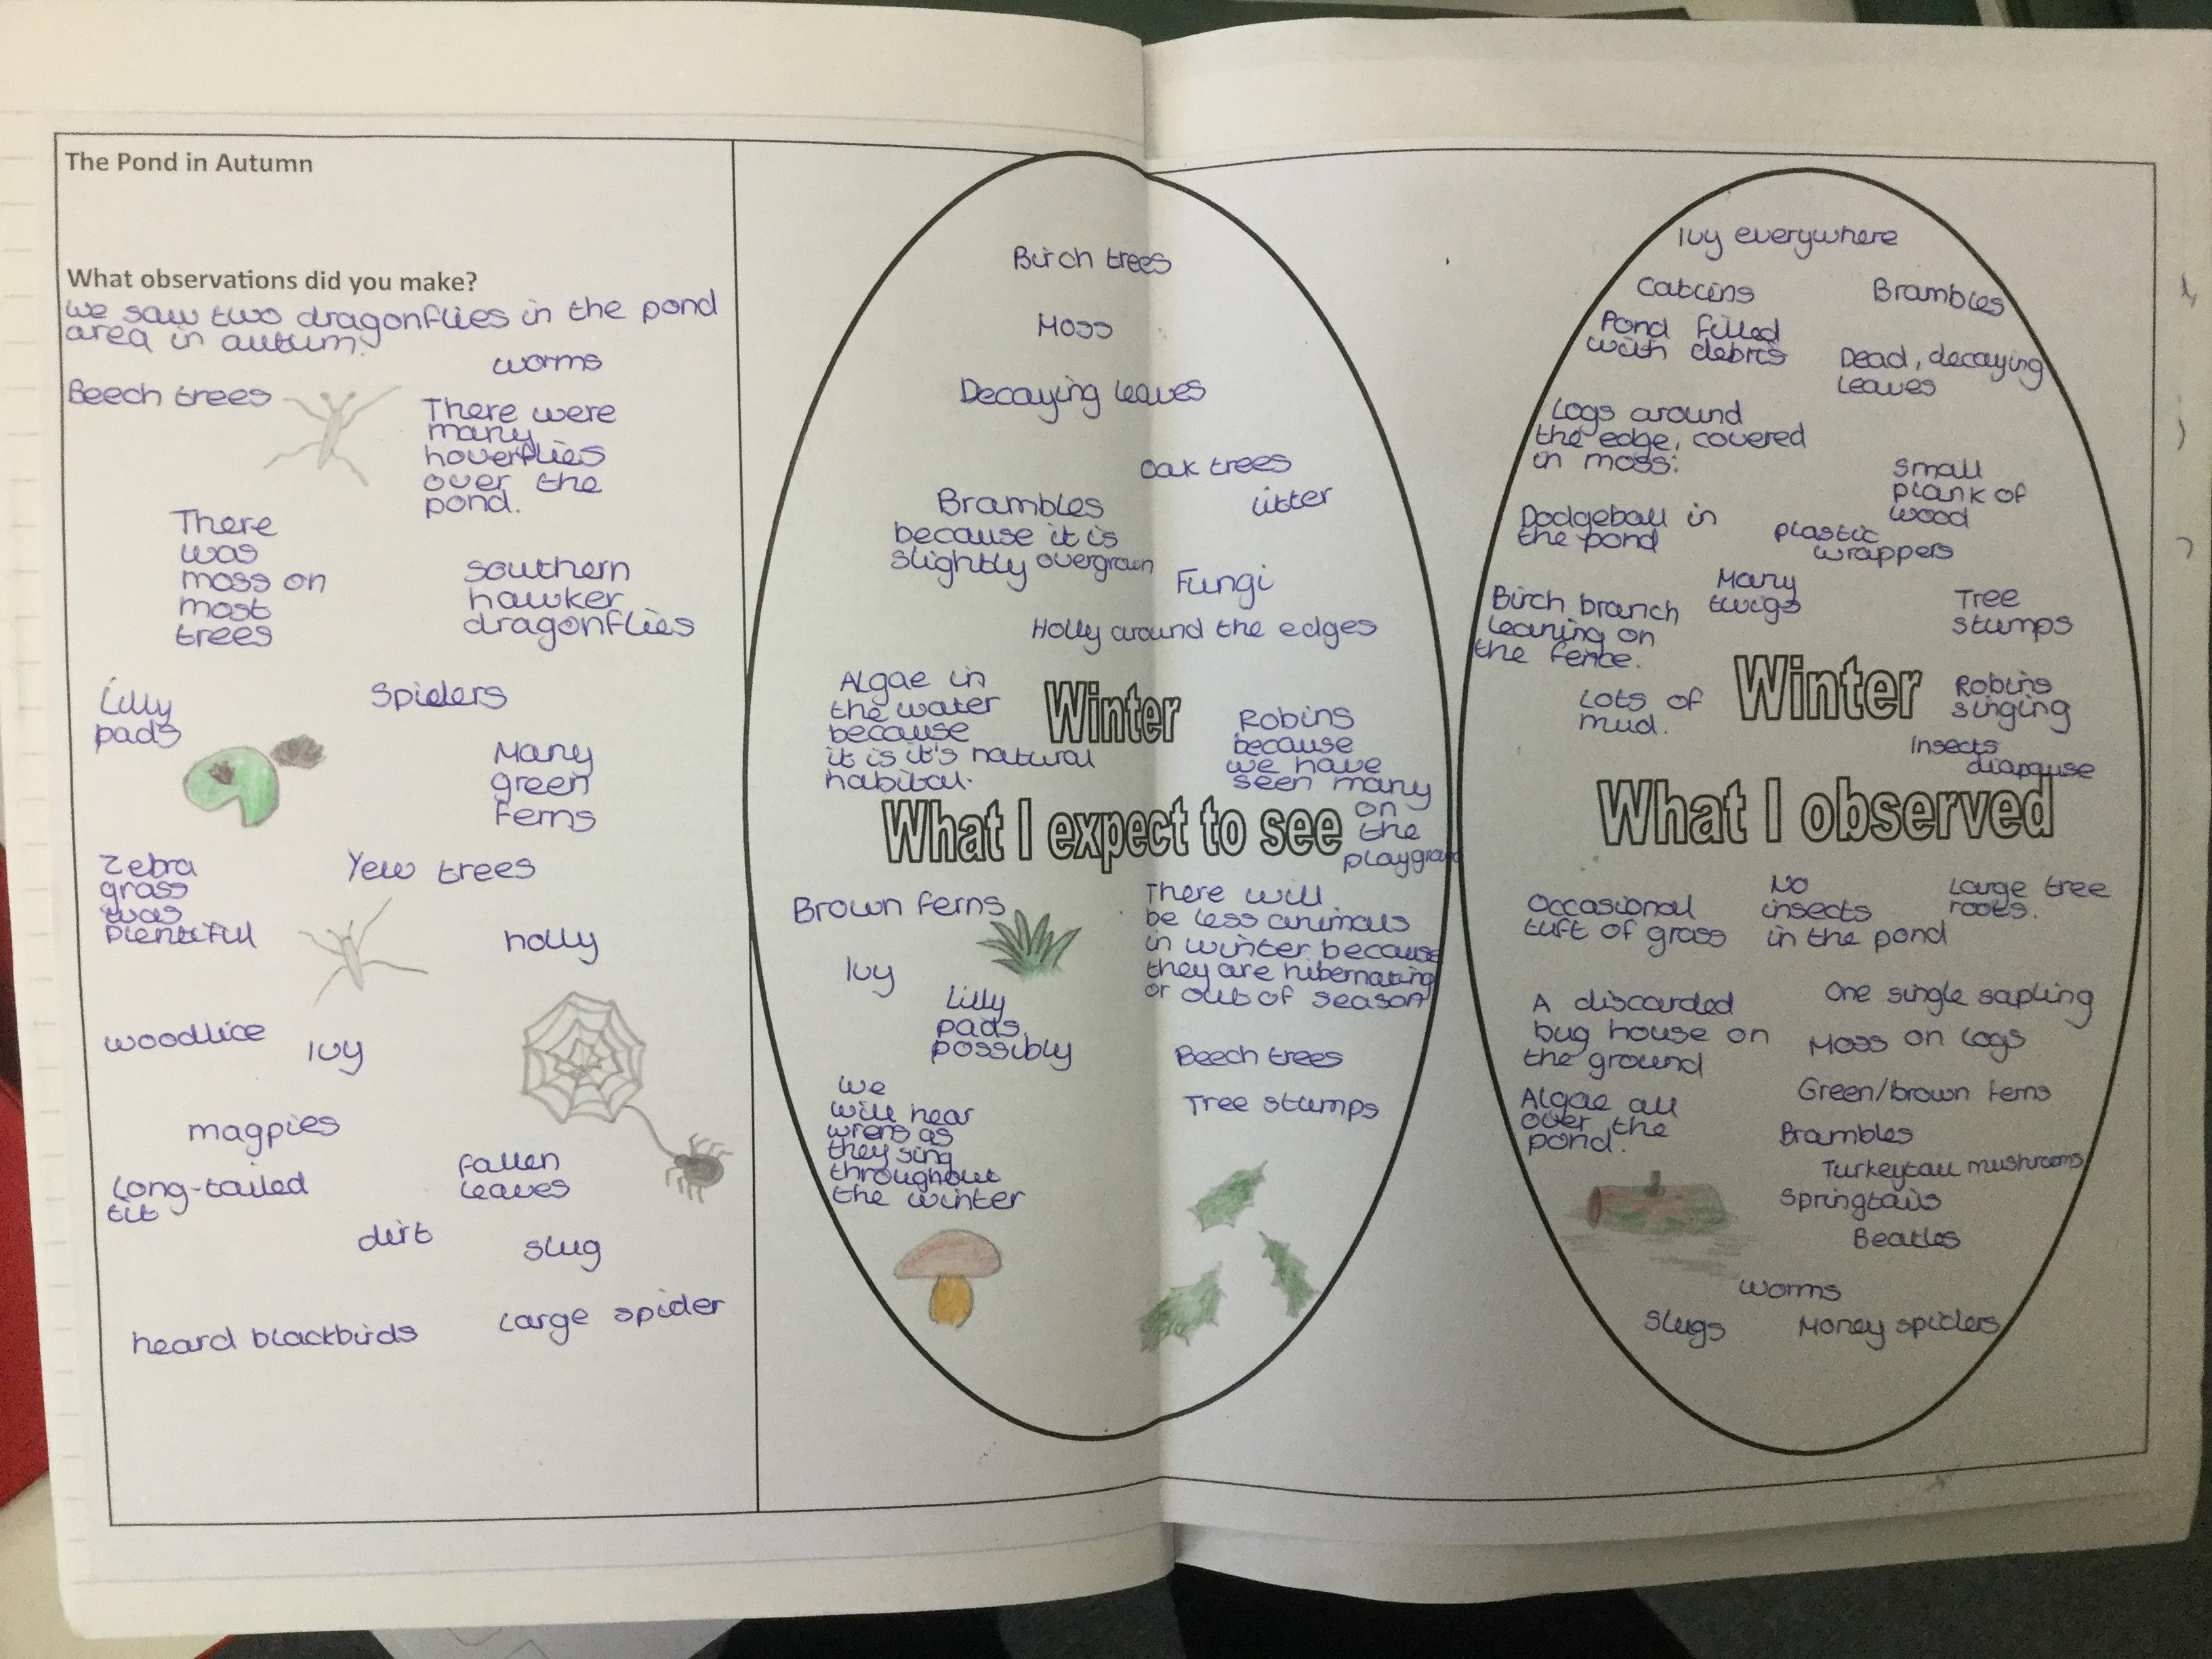 The Pond in Autumn
What observations did you make?
we saw two dragonflies in the pond
area in autum.
worms
Beech trees
There were
many
hoverflies
over the
pond.
There
was
moss on
most
trees
southern
hawker
dragonflies
Lilly
pads
Spiders
Many
green
ferns
Zebra
grass
was
plentiful
Yew trees
holly
woodlice
Ivy
magpies
Long-tailed
tit
fallen
leaves
dirt
slug
heard blackbirds
Large spider
Birch trees
Moss
Decaying leaves
Oak trees
Litter
Brambles
because it is
slightly overgrown
Fungi
Holly around the edges
Algae in
the water
because
it is it's natural
habital.
Winter
Robins
because
we have
seen many
on
the
playground
What I expect to see
Brown ferns
Ivy
Lilly
pads,
possibly
There will
be less animals
in winter because
they are hibernating
or out of season
we
will hear
wrens as
they sing
throughout
the winter
Beech trees
Tree stumps
Ivy everywhere
Catcins
Brambles
Pond filled
with debris
Dead, decaying
leaves
Logs around
the edge, covered
in moss.
Small
plank of
wood
Dodgeball in
the pond
plastic
wrappers
Birch branch
leaning on
the fence.
Many
twigs
Tree
stumps
Lots of
mud.
Winter
Robins
singing
Insects
diapause
What I observed
Occasional
tuft of grass
No
insects
in the pond
Large tree
roots.
A discarded
bug house on
the ground
One single sapling
Moss on logs
Algae all
over the
pond.
Green/brown ferns
Brambles
Turkeytail mushrooms
Springtails
Beatles
worms
Slugs
Money spiders